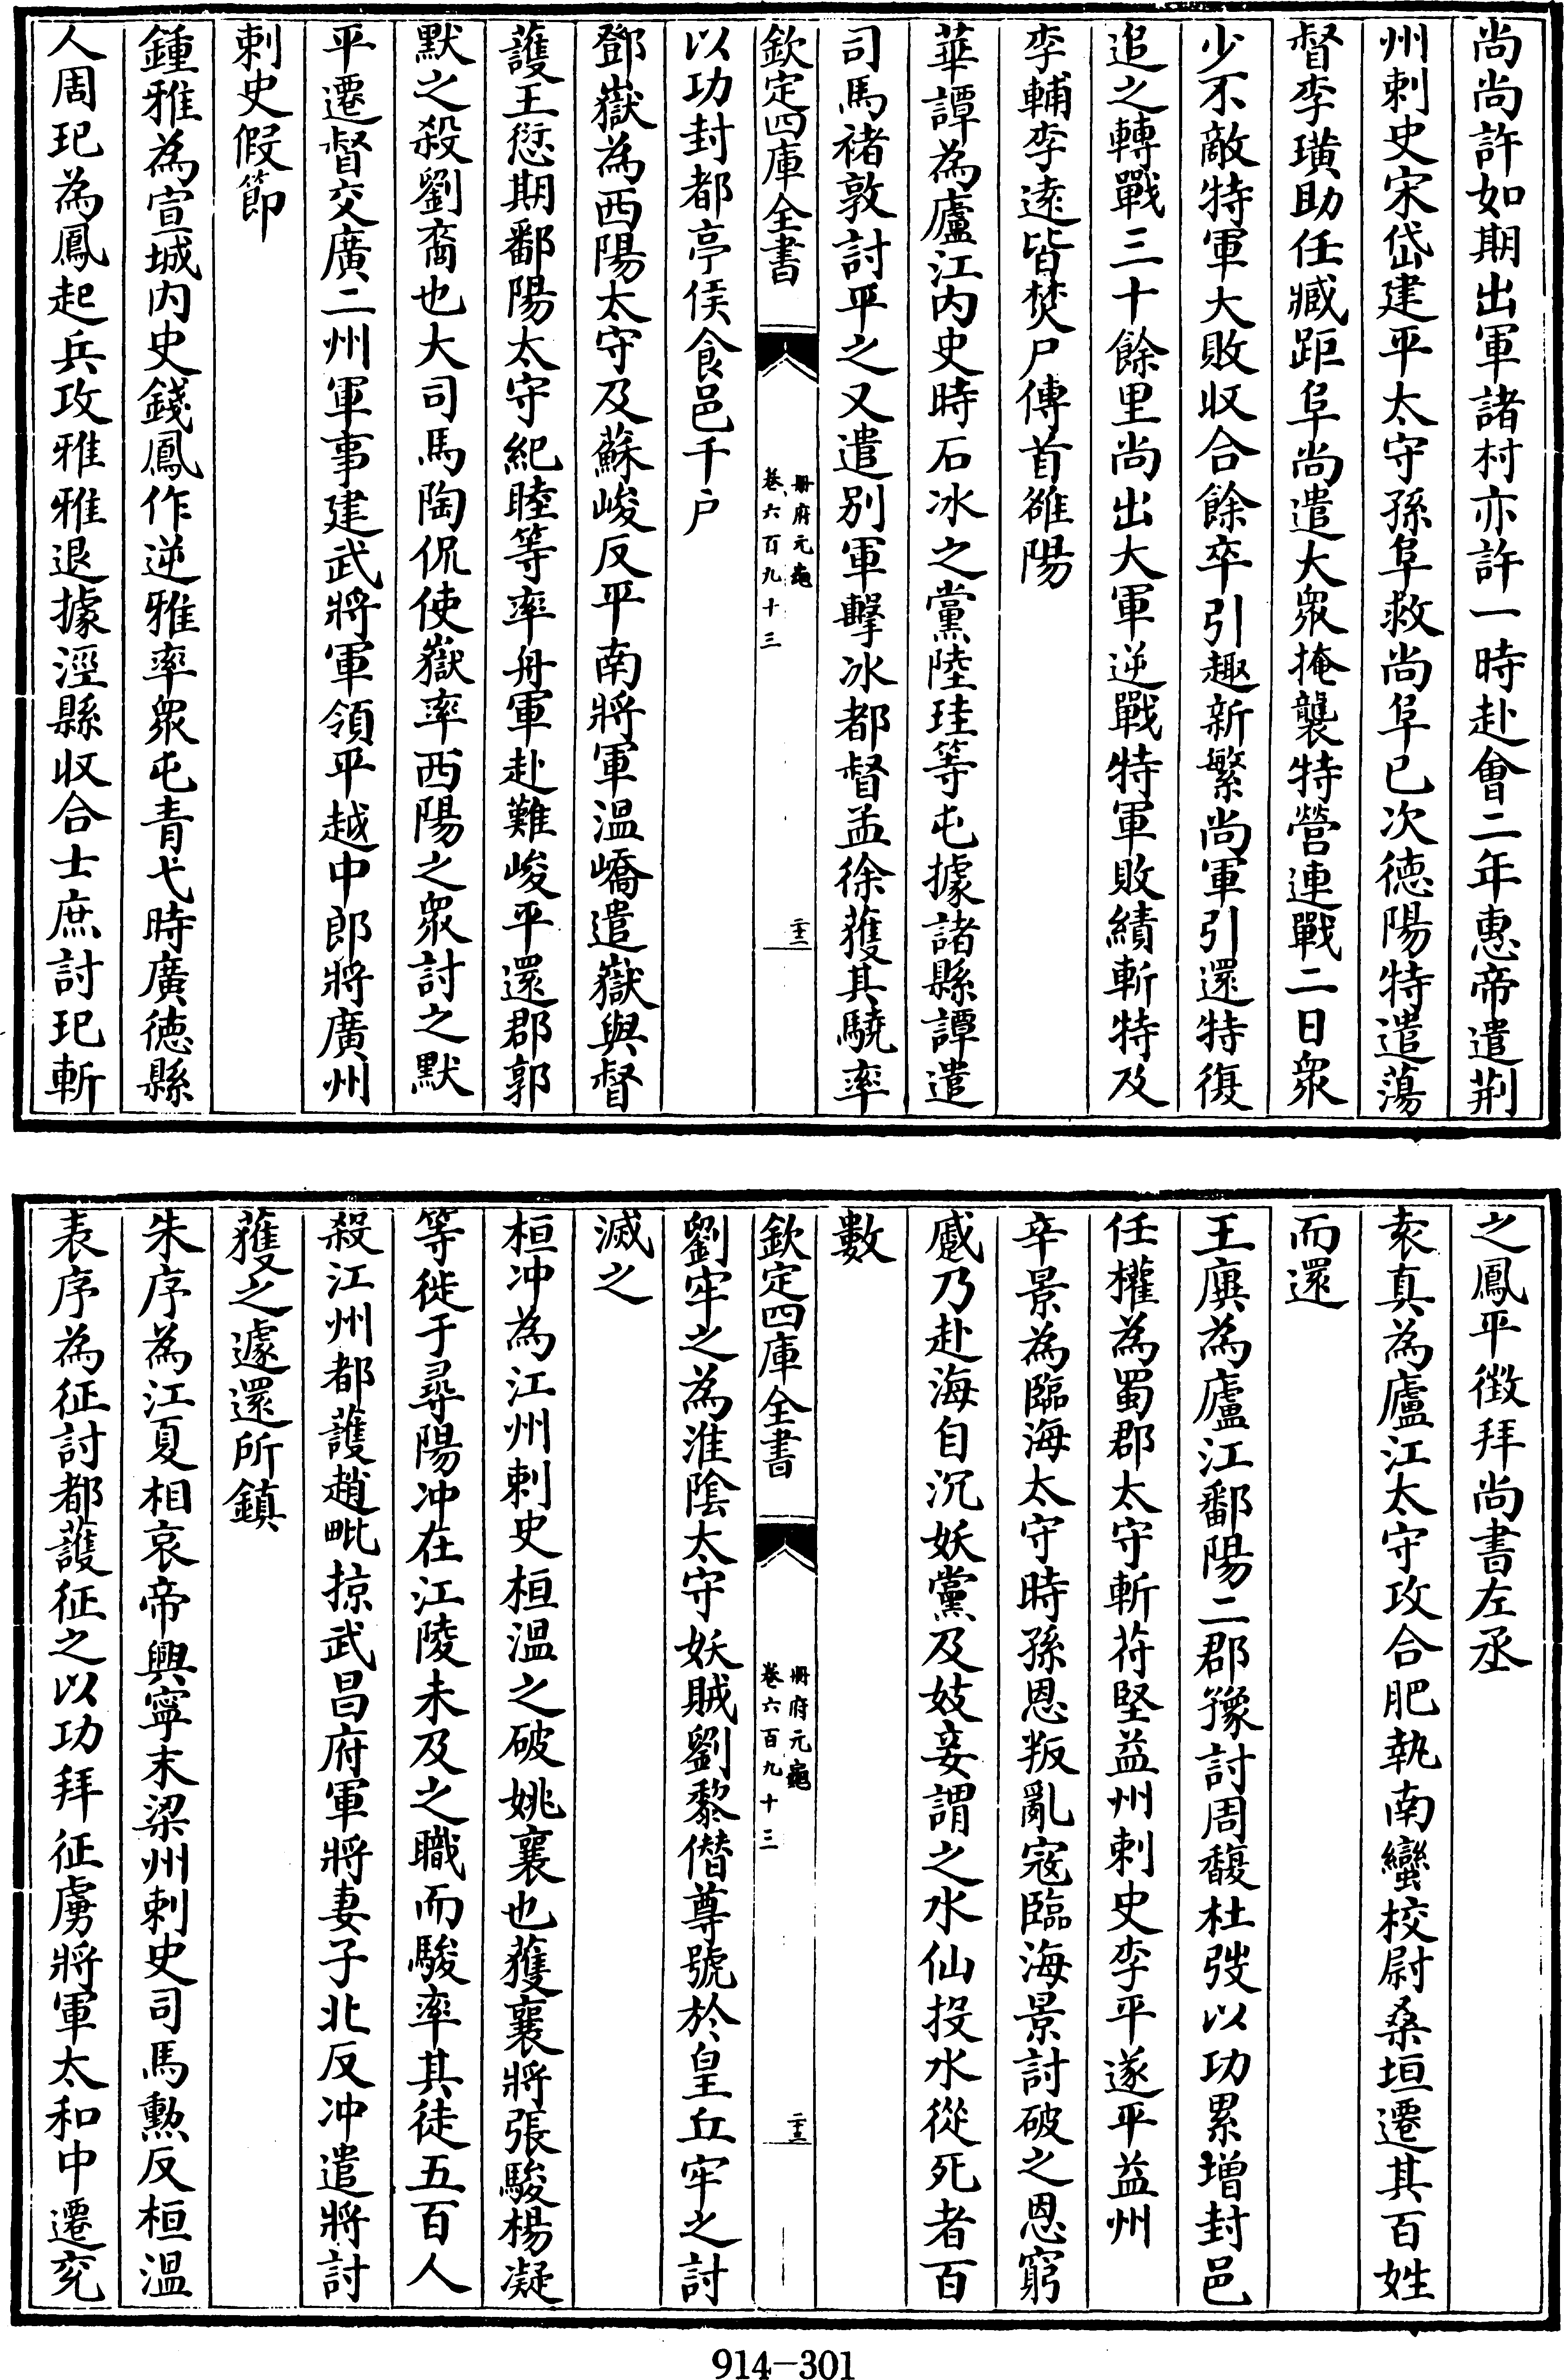 尚尚許如期出軍諸村亦許一時赴會二年惠帝遣荆
州刺史宋岱建平太守孫阜救尚阜已次徳陽特遣蕩
督李璜助任臧距阜尚遣大衆掩襲特營連戰二日衆
少不敵特軍大敗収合餘卒引趣新繁尚軍引還特復
追之轉戰三十餘里尚出大軍逆戰特軍敗績斬特及
李輔李逺皆焚尸傳首雒陽
華譚為廬江内史時石冰之黨陸珪等屯據諸縣譚遣
司馬褚敦討平之又遣别軍擊冰都督孟徐獲其驍率
欽定四庫全書
冊府元龜
卷六百九十三
二十二
以功封都亭侯食邑千户
鄧嶽為西陽太守及蘇峻反平南將軍温嶠遣嶽與督
護王愆期鄱陽太守紀睦等率舟軍赴難峻平還郡郭
默之殺劉裔也大司馬陶侃使嶽率西陽之衆討之默
平遷督交廣二州軍事建武將軍領平越中郎將廣州
刺史假節
鍾雅為宣城内史錢鳳作逆雅率衆屯青弋時廣徳縣
人周玘為鳳起兵攻雅雅退據涇縣収合士庶討玘斬
之鳳平徴拜尚書左丞
袁真為廬江太守攻合肥執南蠻校尉桑垣遷其百姓
而還
王廙為廬江鄱陽二郡豫討周馥杜弢以功累增封邑
任權為蜀郡太守斬苻堅益州刺史李平遂平益州
辛景為臨海太守時孫恩叛亂寇臨海景討破之恩窮
慼乃赴海自沉妖黨及妓妾謂之水仙投水從死者百
數
欽定四庫全書
冊府元龜
卷六百九十三
二十三
劉牢之為淮陰太守妖賊劉黎僭尊號於皇丘牢之討
滅之
桓沖為江州刺史桓温之破姚襄也獲襄將張駿楊凝
等徙于尋陽冲在江陵未及之職而駿率其徒五百人
殺江州都護趙毗掠武昌府軍將妻子北反冲遣將討
獲之遽還所鎮
朱序為江夏相哀帝興寧末梁州刺史司馬勲反桓温
表序為征討都護征之以功拜征虜將軍太和中遷兖
914-301